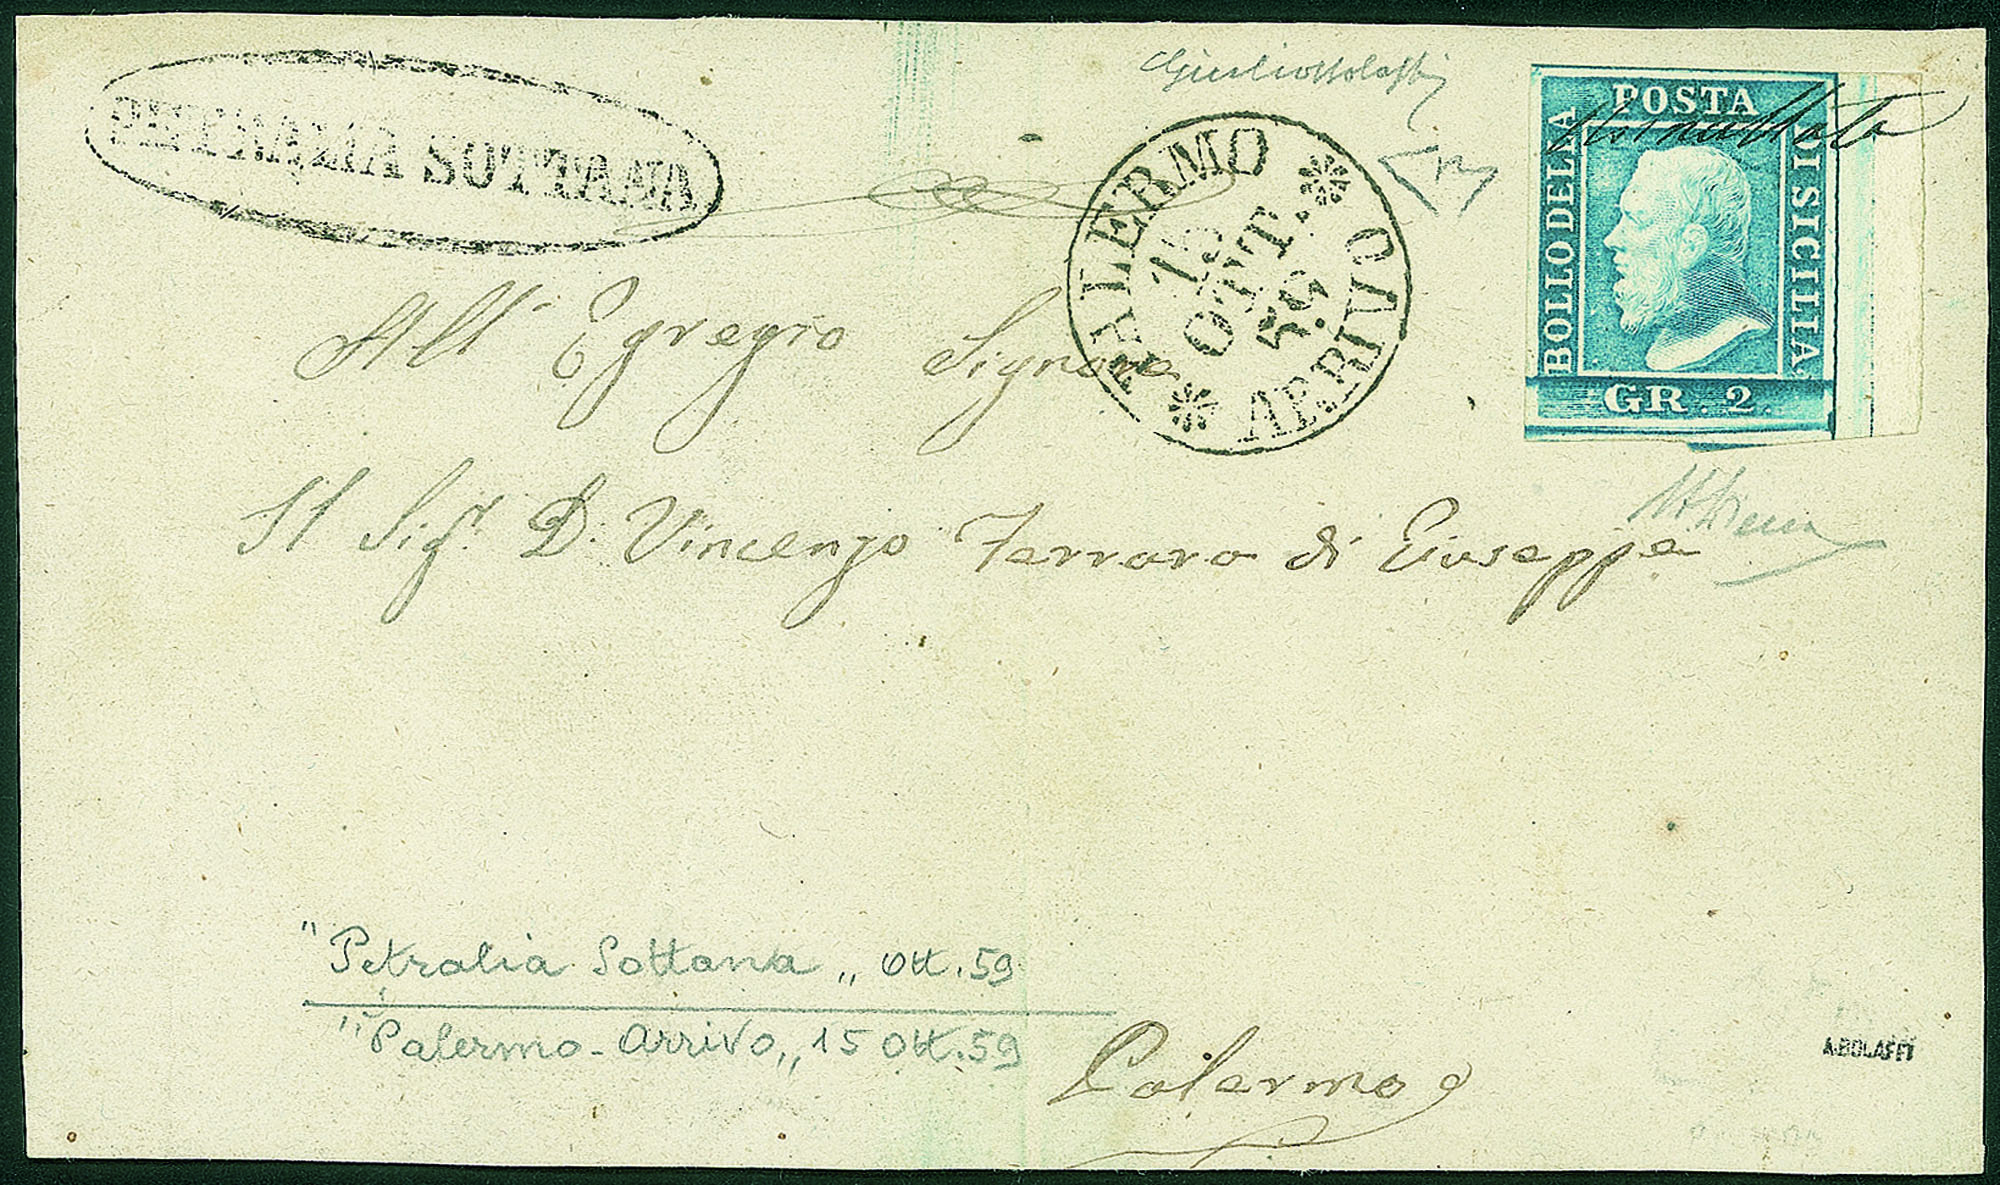 PETRALIA SOTTANA
PALERMO
15
OTT.
59
ARRIVO
POSTA
BOLLO DELLA
DI SICILIA
GR. 2.
All' Egregio Signore
Il Sigr. D. Vincenzo Ferraro di Giuseppe
"Petralia Sottana„ Ott. 59
"Palermo - Arrivo„ 15 Ott. 59
Palermo
A.BOLAFFI